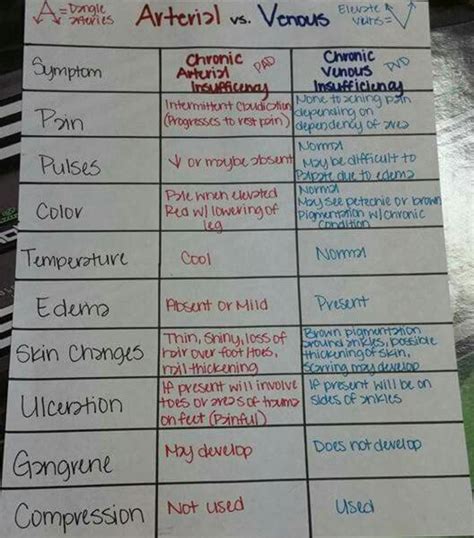 A = Dangle
arteries
Arterial vs. Venous
Elevate
veins = V
Symptom
Chronic
Arterial
Insufficency
PAD
Chronic
Venous
Insufficiency
PVD
Pain
Intermittent Claudication
(Progresses to rest pain)
None to aching pain
depending on
dependency of area
Pulses
↓ or maybe absent
Normal
May be difficult to
Palpate due to edema
Color
Pale when elevated
Red w/ lowering of
leg
Normal
May see petechie or brown
Pigmentation w/ chronic
condition
Temperature
Cool
Normal
Edema
Absent or Mild
Present
Skin Changes
Thin, shiny, loss of
hair over foot + toes,
nail thickening
Brown pigmentation
around ankles, possible
thickening of skin,
scarring may develop
Ulceration
If present will involve
toes or areas of trauma
on feet (Painful)
If present will be on
sides of ankles
Gangrene
May develop
Does not develop
Compression
Not used
Used